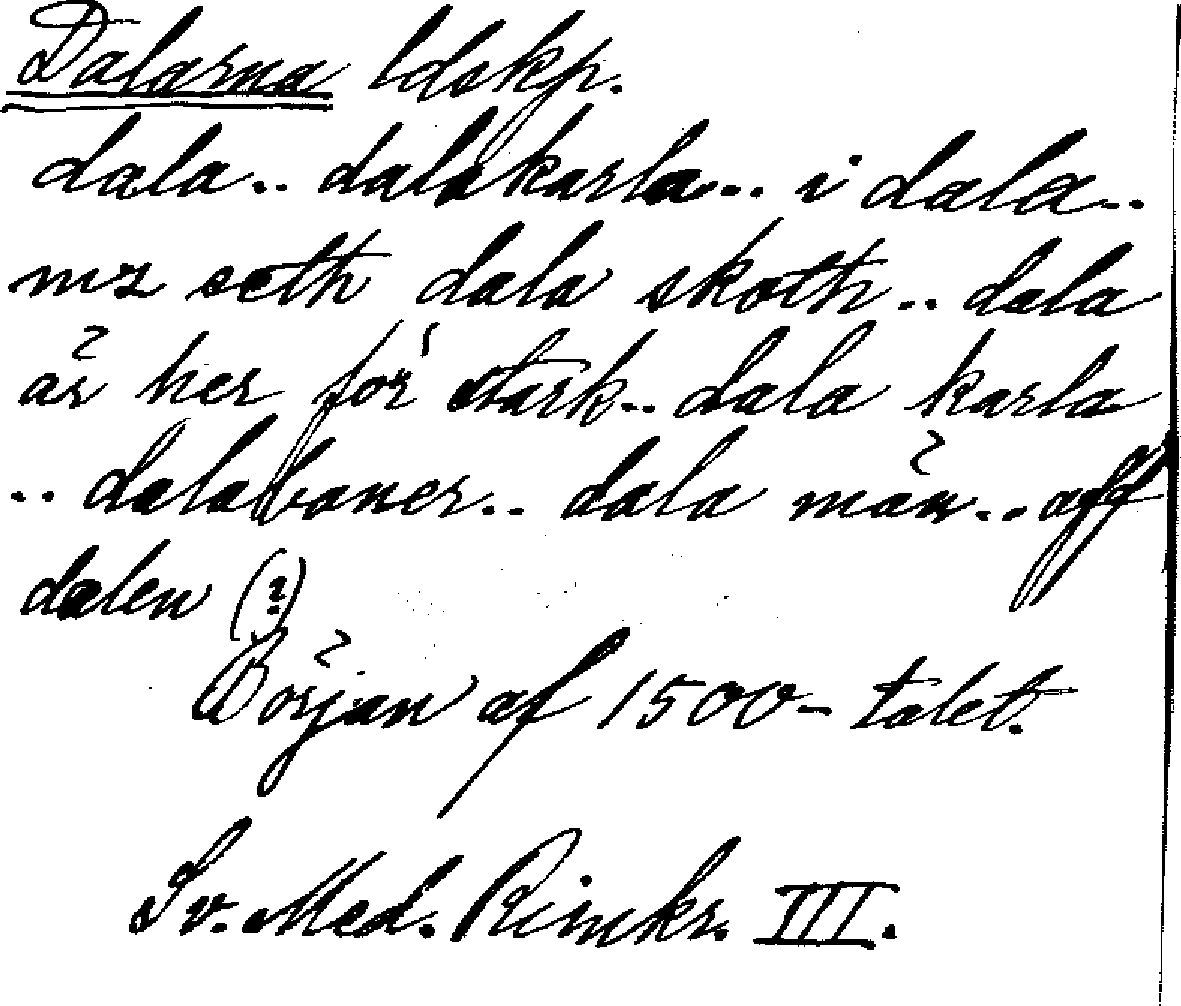 Dalarna ldskp.
dala.. dala karla.. i dala..
mz seth dala skoth.. dala
är her för stark.. dala karla
.. dalaboner.. dala män.. aff
dalen (?)
Början af 1500-talet.
Sv. Med. Rimkr. III.